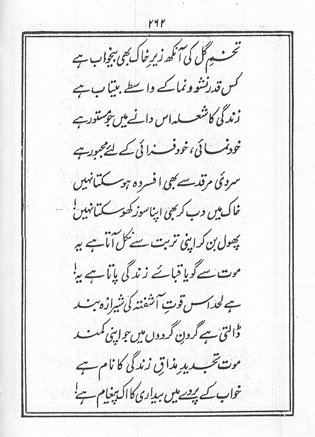 ۲۶۲
تخمِ گل کی آنکھ زیرِ خاک بھی بیخواب ہے
کس قدر نشوونما کے واسطے بیتاب ہے
زندگی کا شعلہ اس دانے میں جو مستور ہے
خود نمائی، خود فزائی کے لئے مجبور ہے
سردیٔ مرقد سے بھی افسردہ ہو سکتا نہیں
خاک میں دب کر بھی اپنا سوز کھو سکتا نہیں!
پھول بن کر اپنی تربت سے نکل آتا ہے یہ
موت سے گویا قبائے زندگی پاتا ہے یہ!
ہے لحد اس قوتِ آشفتہ کی شیرازہ بند
ڈالتی ہے گردنِ گردوں میں جو اپنی کمند
موت تجدیدِ مذاقِ زندگی کا نام ہے
خواب کے پردے میں بیداری کا اک پیغام ہے!